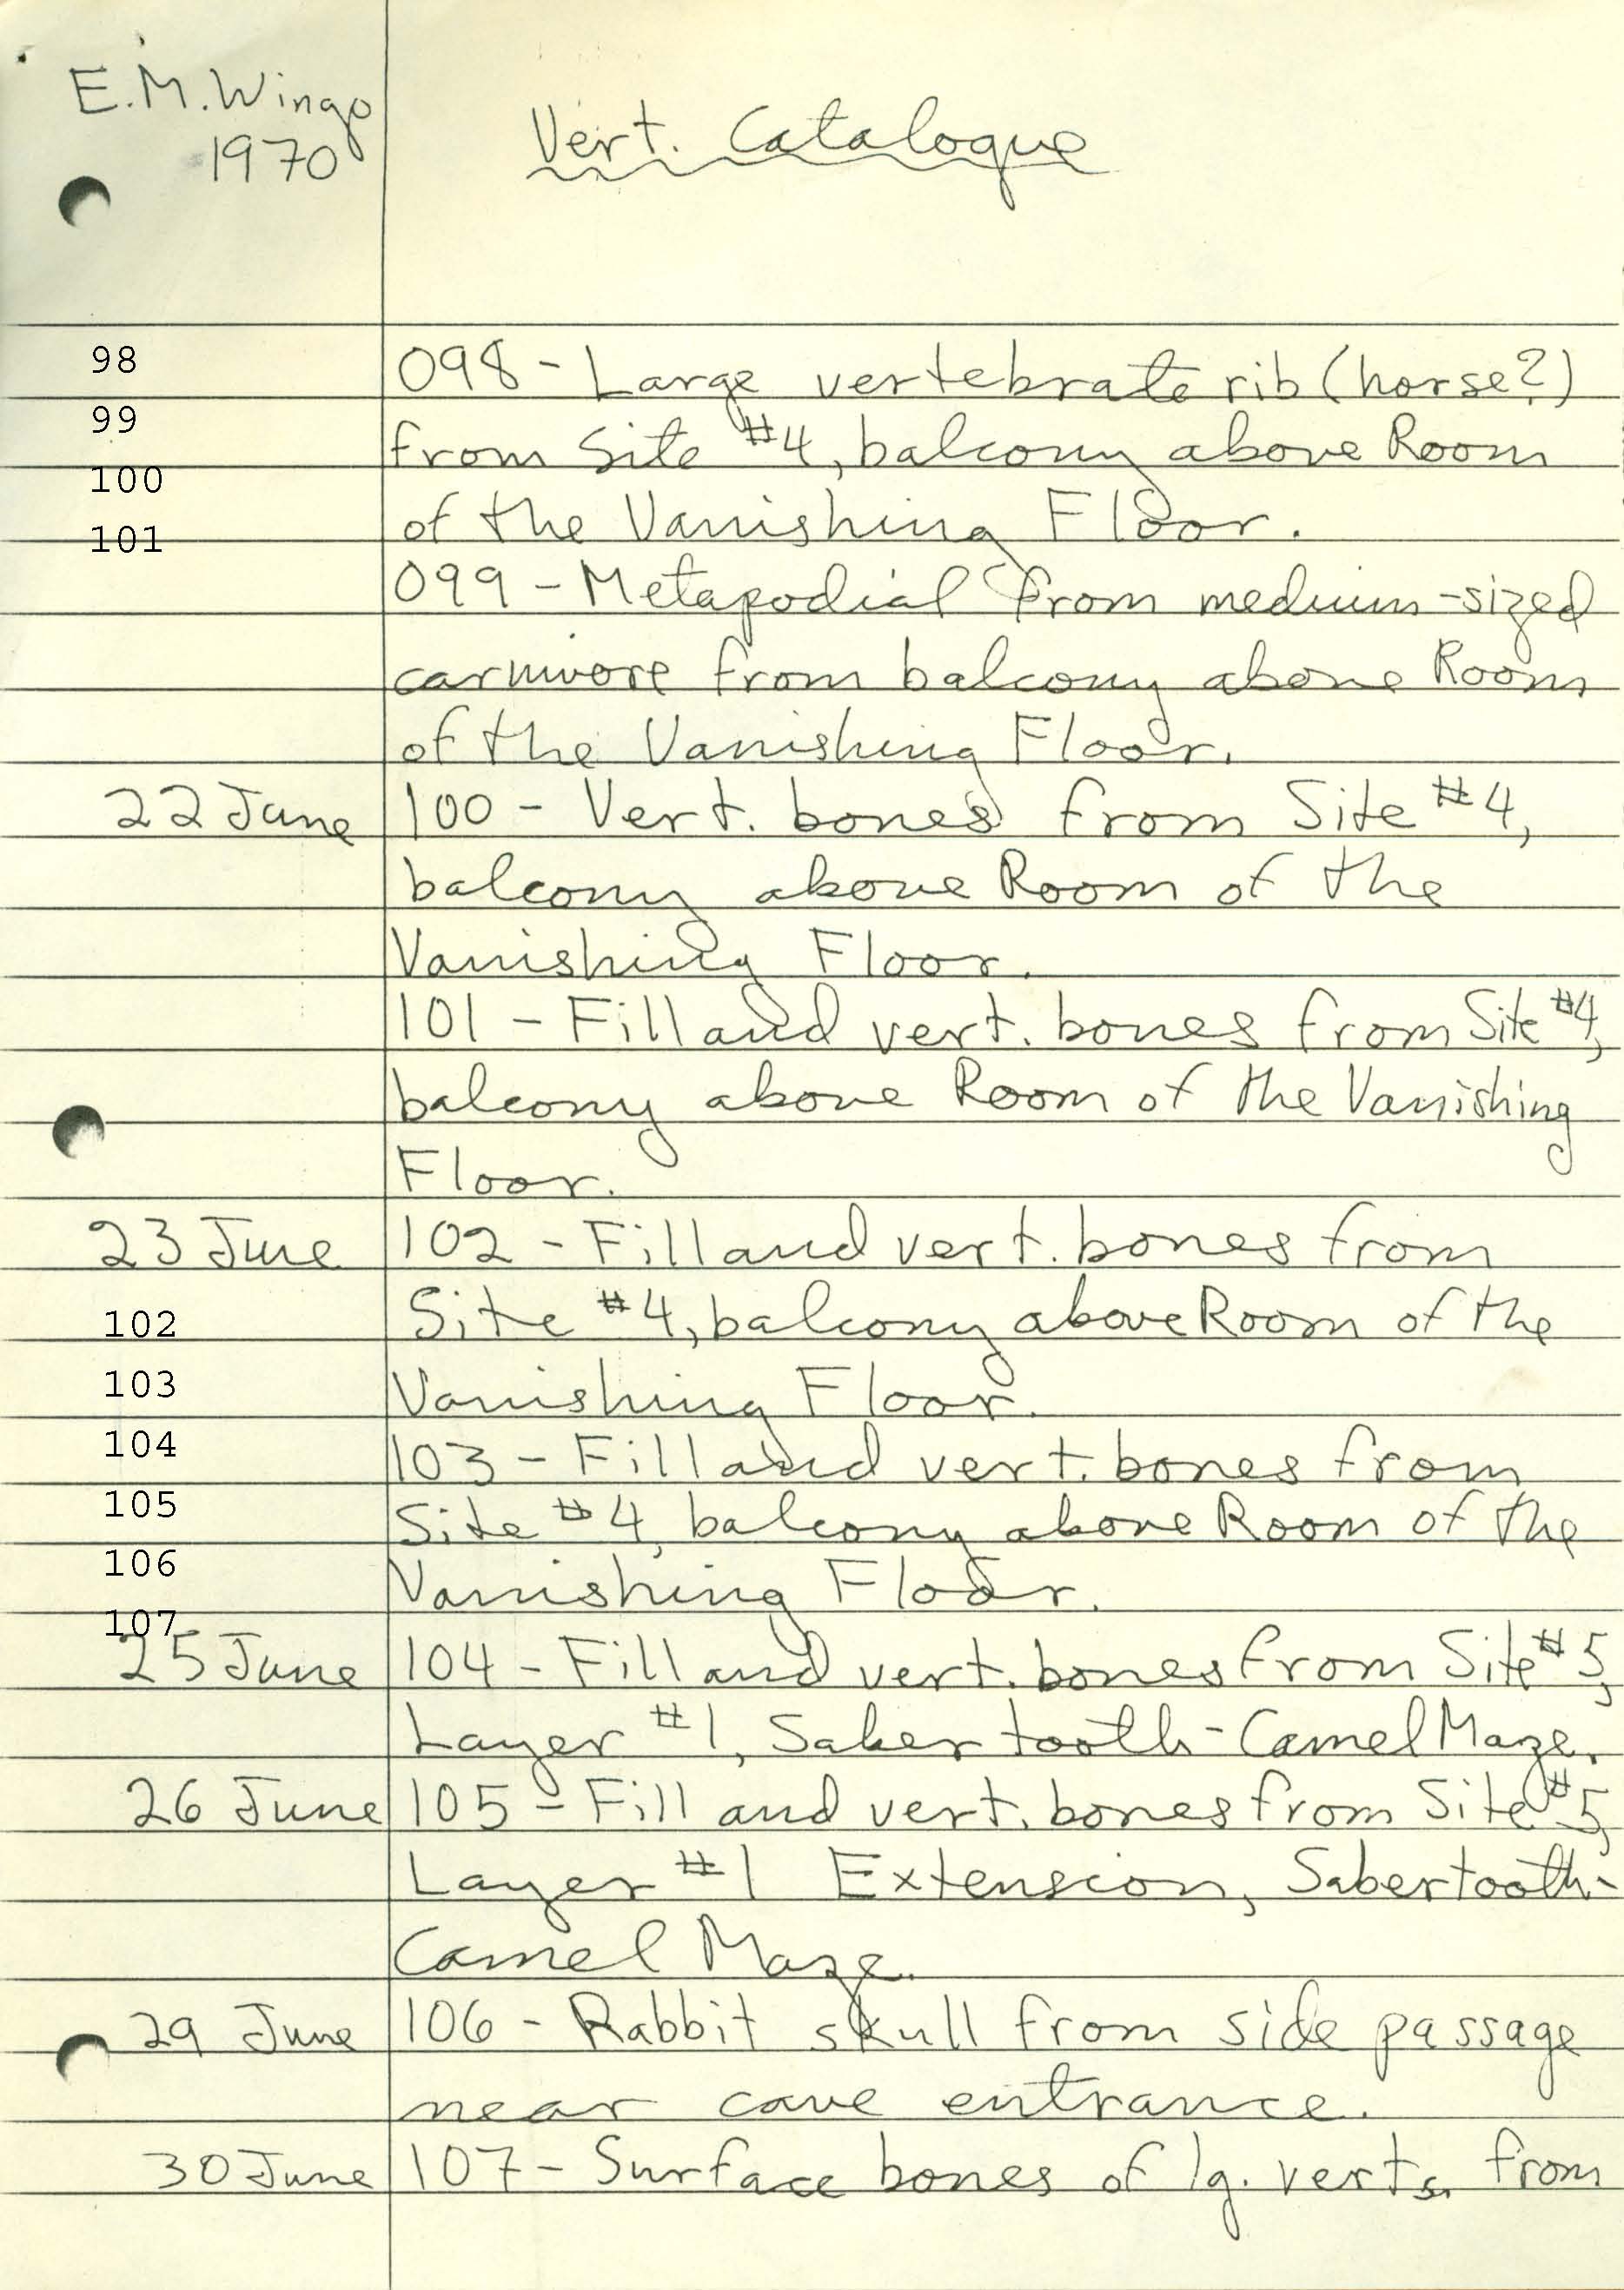 E.M. Wingo
1970
Vert. Catalogue
98
098 - Large vertebrate rib (horse?)
99
from Site #4, balcony above Room
100
of the Vanishing Floor.
101
099 - Metapodial from medium-sized
carnivore from balcony above Room
of the Vanishing Floor.
22 June 100 - Vert. bones from Site #4,
balcony above Room of the
Vanishing Floor.
101 - Fill and vert. bones from Site #4,
balcony above Room of the Vanishing
Floor.
23 June 102 - Fill and vert. bones from
102
Site #4, balcony above Room of the
103
Vanishing Floor.
104
103 - Fill and vert. bones from
105
Site #4, balcony above Room of the
106
Vanishing Floor.
107
25 June 104 - Fill and vert. bones from Site #5,
Layer #1, Saber tooth-Camel Maze.
26 June 105 - Fill and vert. bones from Site #5,
Layer #1 Extension, Sabertooth-
Camel Maze.
29 June 106 - Rabbit skull from side passage
near cave entrance.
30 June 107 - Surface bones of lg. verts. from